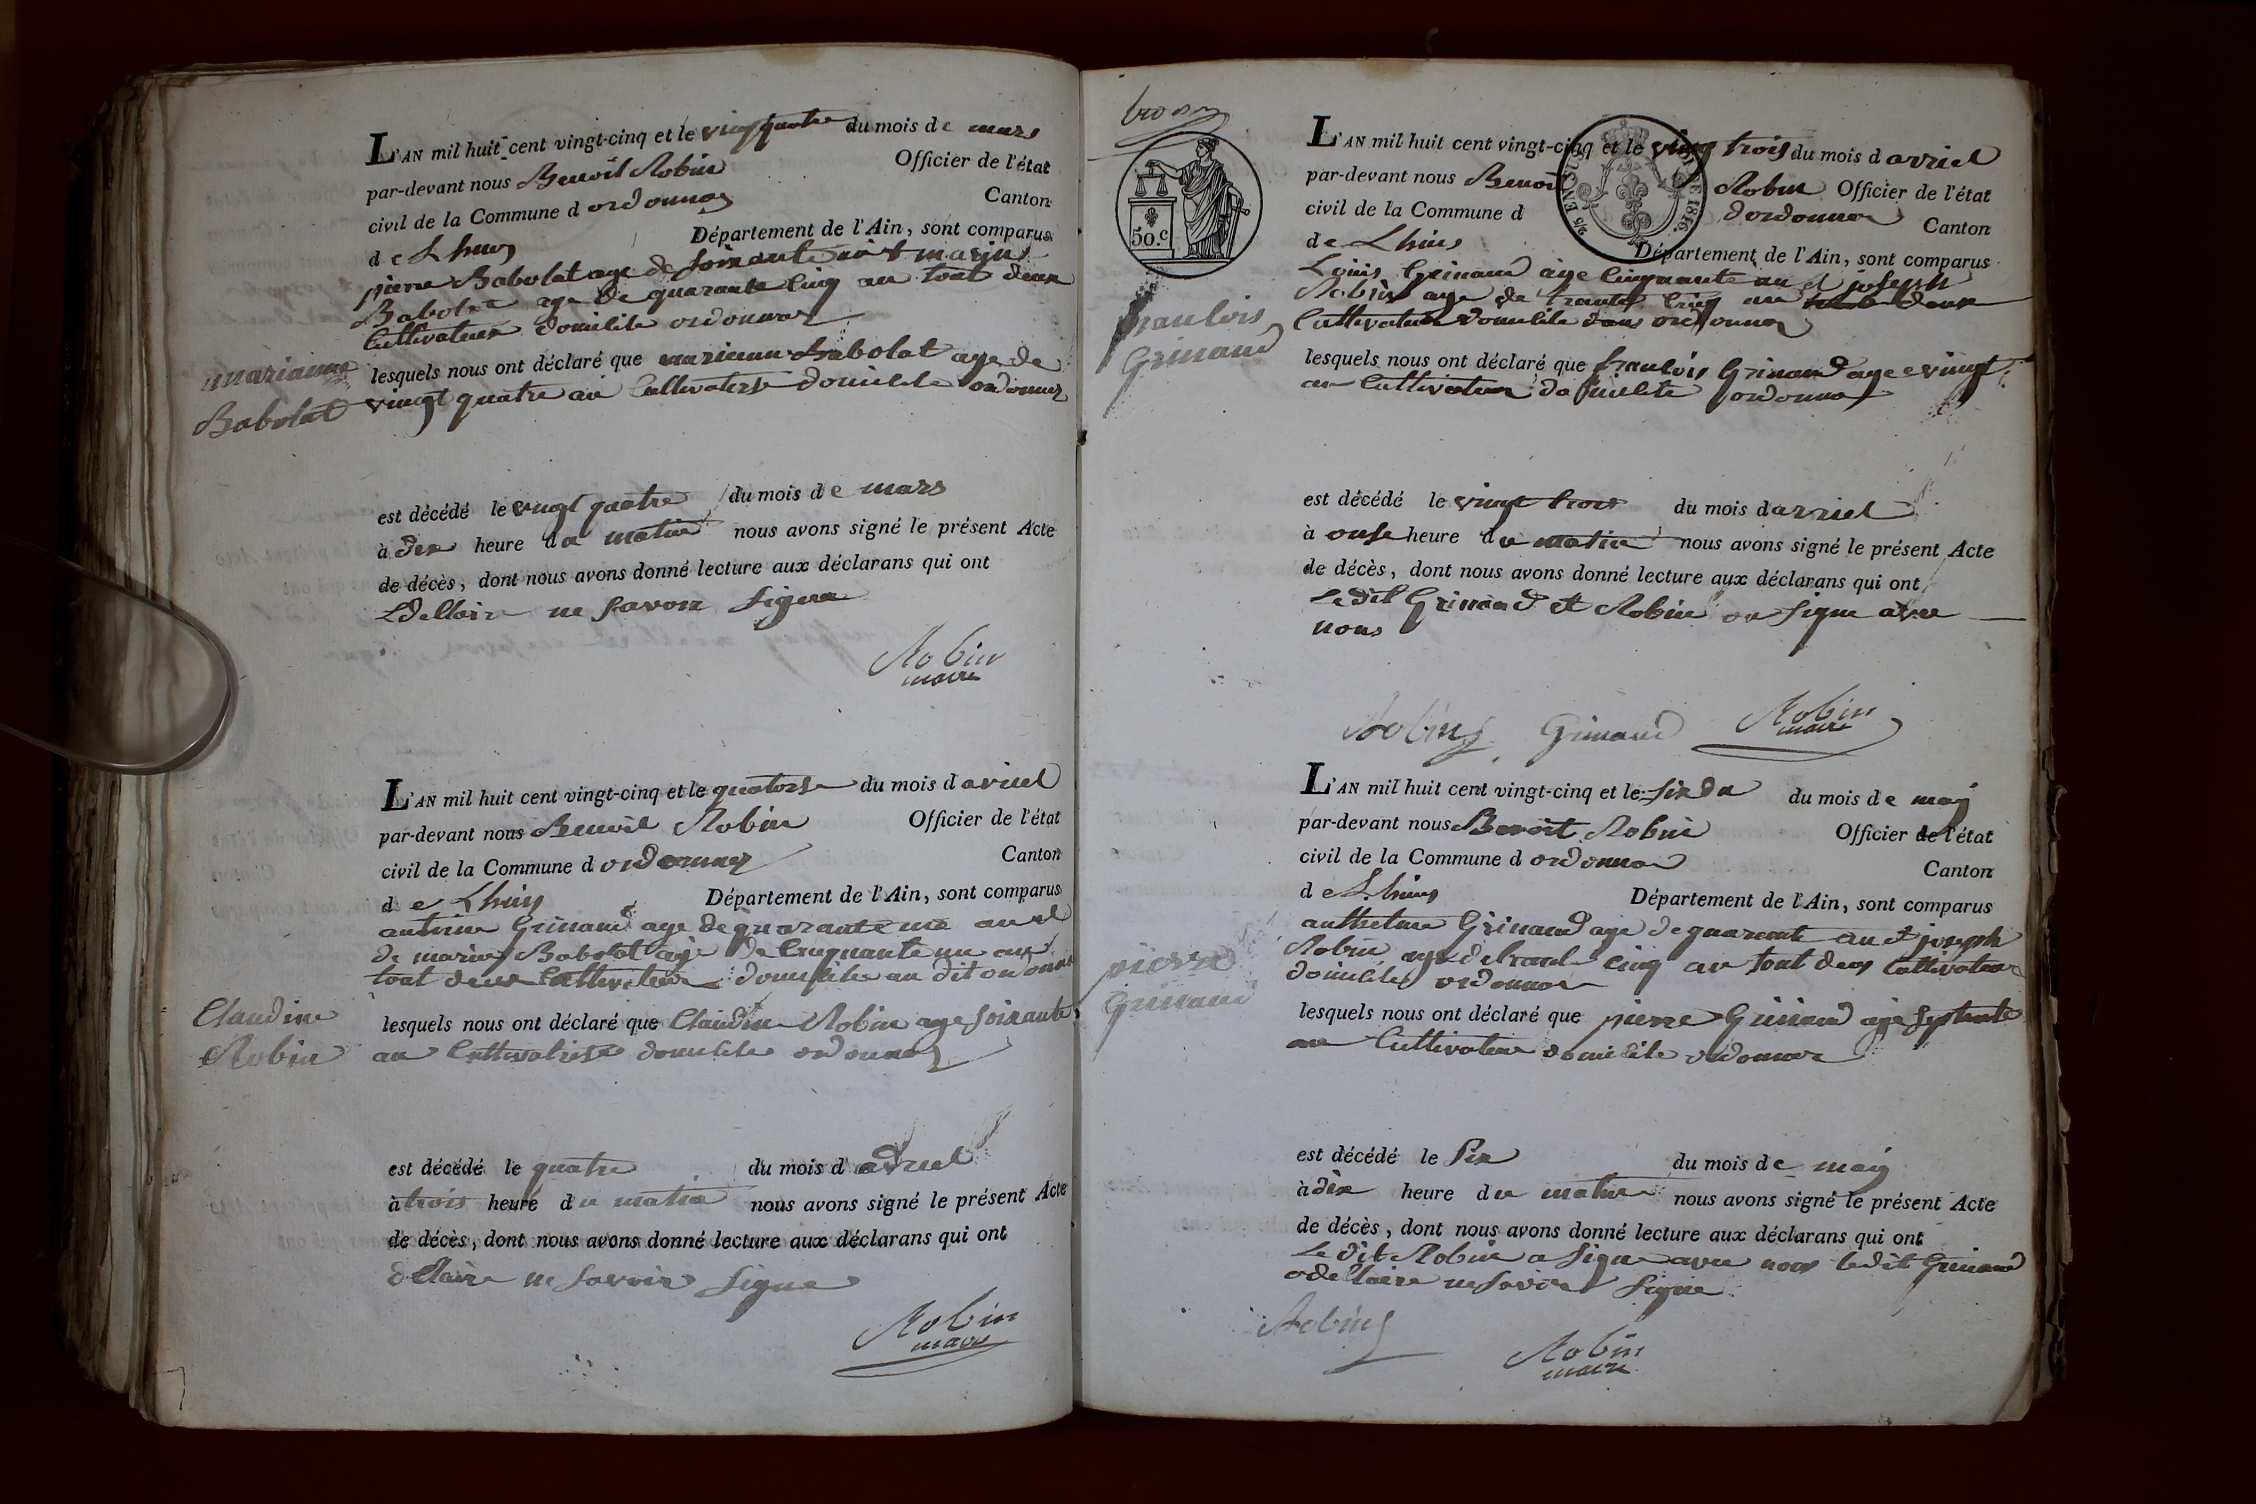 L'AN mil huit cent vingt-cinq et le vingt quatre du mois de mars
par-devant nous Benoit Robin Officier de l'état
civil de la Commune d ordonnaz Canton
de Lhuis Département de l'Ain, sont comparus
pierre Babolat age de soixante
Babolat age de quarante cinq an tout deux
Cultivateur domilile ordonnaz
marianne
Babolat
lesquels nous ont déclaré que marianne Babolat age de
vingt quatre an Cultivatrise domicile ordonnaz
est décédé le vingt quatre du mois de mars
à dix heure du matin nous avons signé le présent Acte
de décès, dont nous avons donné lecture aux déclarans qui ont
ne savoir signer
Robin
maire
L'AN mil huit cent vingt-cinq et le quatorse du mois d avriel
par-devant nous Benoit Robin Officier de l'état
civil de la Commune d ordonnaz Canton
de Lhuis Département de l'Ain, sont comparus
antoine Grinand age de quarante an et
de marin Babolat age de Cinquante un an
tout deux Cultivateur domicile au dit ordonnaz
Claudine
Robin
lesquels nous ont déclaré que Claudine Robin age soixante
an Cultivatrise domicile ordonnaz
est décédé le quatre du mois d avriel
à trois heure du matin nous avons signé le présent Acte
de décès, dont nous avons donné lecture aux déclarans qui ont
declaire ne savoir signe
Robin
maire
trois
50.c
L'AN mil huit cent vingt-cinq et le ving trois du mois d avriel
par-devant nous Benoit Robin Officier de l'état
civil de la Commune d dordonnaz Canton
de Lhuis Département de l'Ain, sont comparus
Louis Grinand age Cinquante an et joseph
Robin age de trante cinq an deux
Cultivateur domilile dans ordonnaz
franlois
Grinand
lesquels nous ont déclaré que franlois Grinand age vingt
an Cultivateur ordonnaz
est décédé le vingt trois du mois d avriel
à onse heure du matin nous avons signé le présent Acte
de décès, dont nous avons donné lecture aux déclarans qui ont
Le dit Grinand et Robin on signe avec
nous
Robin Grinand Robin
maire
L'AN mil huit cent vingt-cinq et le six du du mois de may
par-devant nous Benoit Robin Officier de l'état
civil de la Commune d ordonnaz Canton
de Lhuis Département de l'Ain, sont comparus
Grinand age de quarante an et joseph
Robin age de trante cinq an tout deux Cultivateur
domicile ordonnaz
pierre
Grinand
lesquels nous ont déclaré que pierre Grinand age septente
an Cultivateur domicile ordonnaz
est décédé le six du mois de may
à dix heure du matin nous avons signé le présent Acte
de décès, dont nous avons donné lecture aux déclarans qui ont
Le dit Robin a signe avec nous ledit Grinand
a declaire ne savoir signe
Robin
Robin
maire